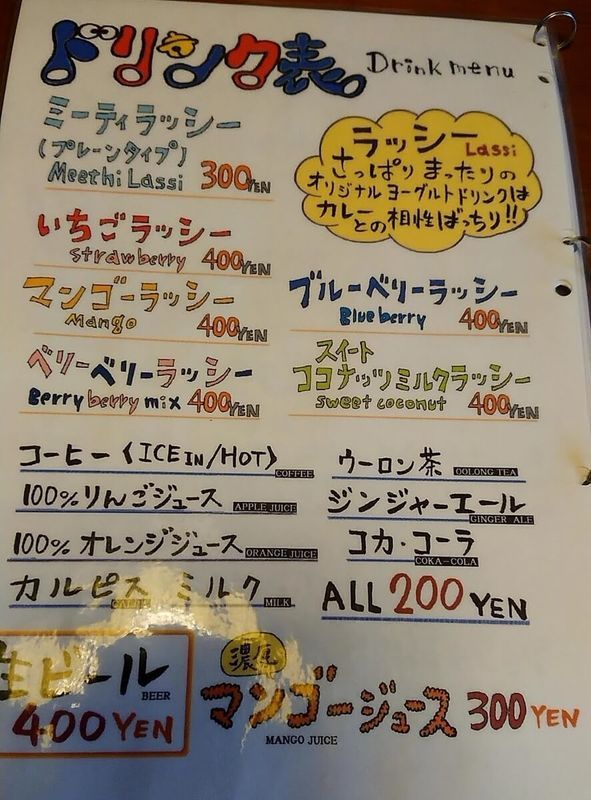 ドリンク表 Drink menu
ミーティラッシー
(プレーンタイプ)
Meethi Lassi 300YEN
ラッシー Lassi
さっぱり まったりの
オリジナル ヨーグルトドリンクは
カレーとの相性ばっちり!!
いちごラッシー
strawberry 400YEN
マンゴーラッシー
Mango 400YEN
ブルーベリーラッシー
Blueberry 400YEN
ベリーベリーラッシー
Berry berry mix 400YEN
スイート
ココナッツミルクラッシー
sweet coconut 400YEN
コーヒー〈ICE IN/HOT〉
COFFEE
ウーロン茶 OOLONG TEA
100%りんごジュース APPLE JUICE
ジンジャーエール
GINGER ALE
100%オレンジジュース ORANGE JUICE
コカ・コーラ
COKA-COLA
カルピス ミルク MILK
ALL 200 YEN
生ビール
BEER
400 YEN
濃厚
マンゴージュース 300 YEN
MANGO JUICE